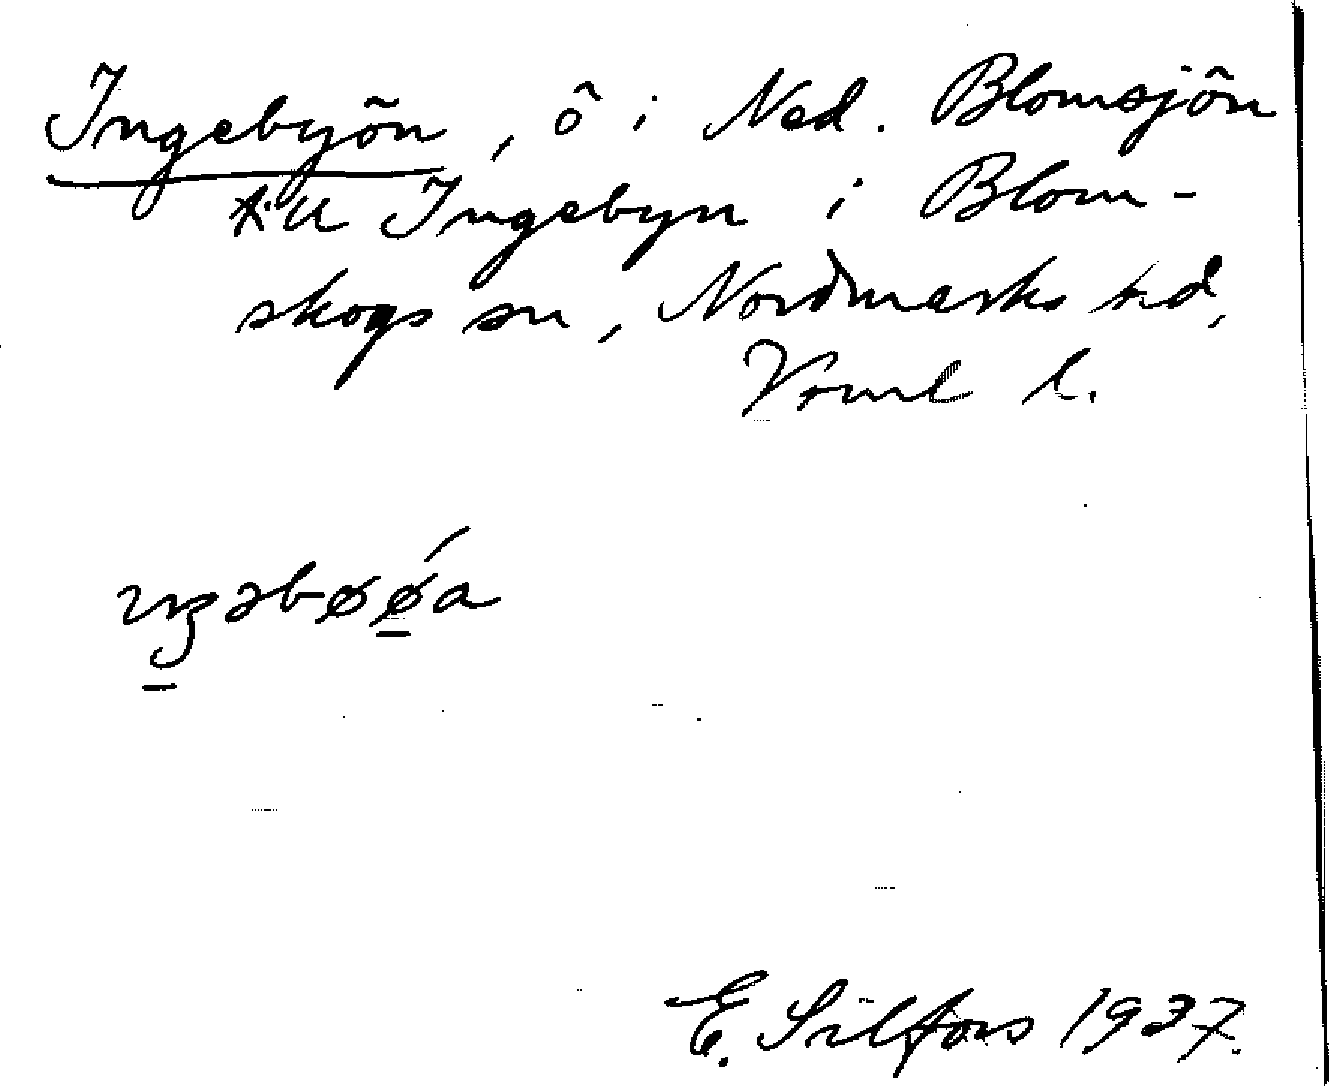 Ingebyön, ö i Ned. Blomsjön
till Ingebyn i Blom-
skogs sn, Nordmarks hd,
Vrml l.
E. Silfors 1937.